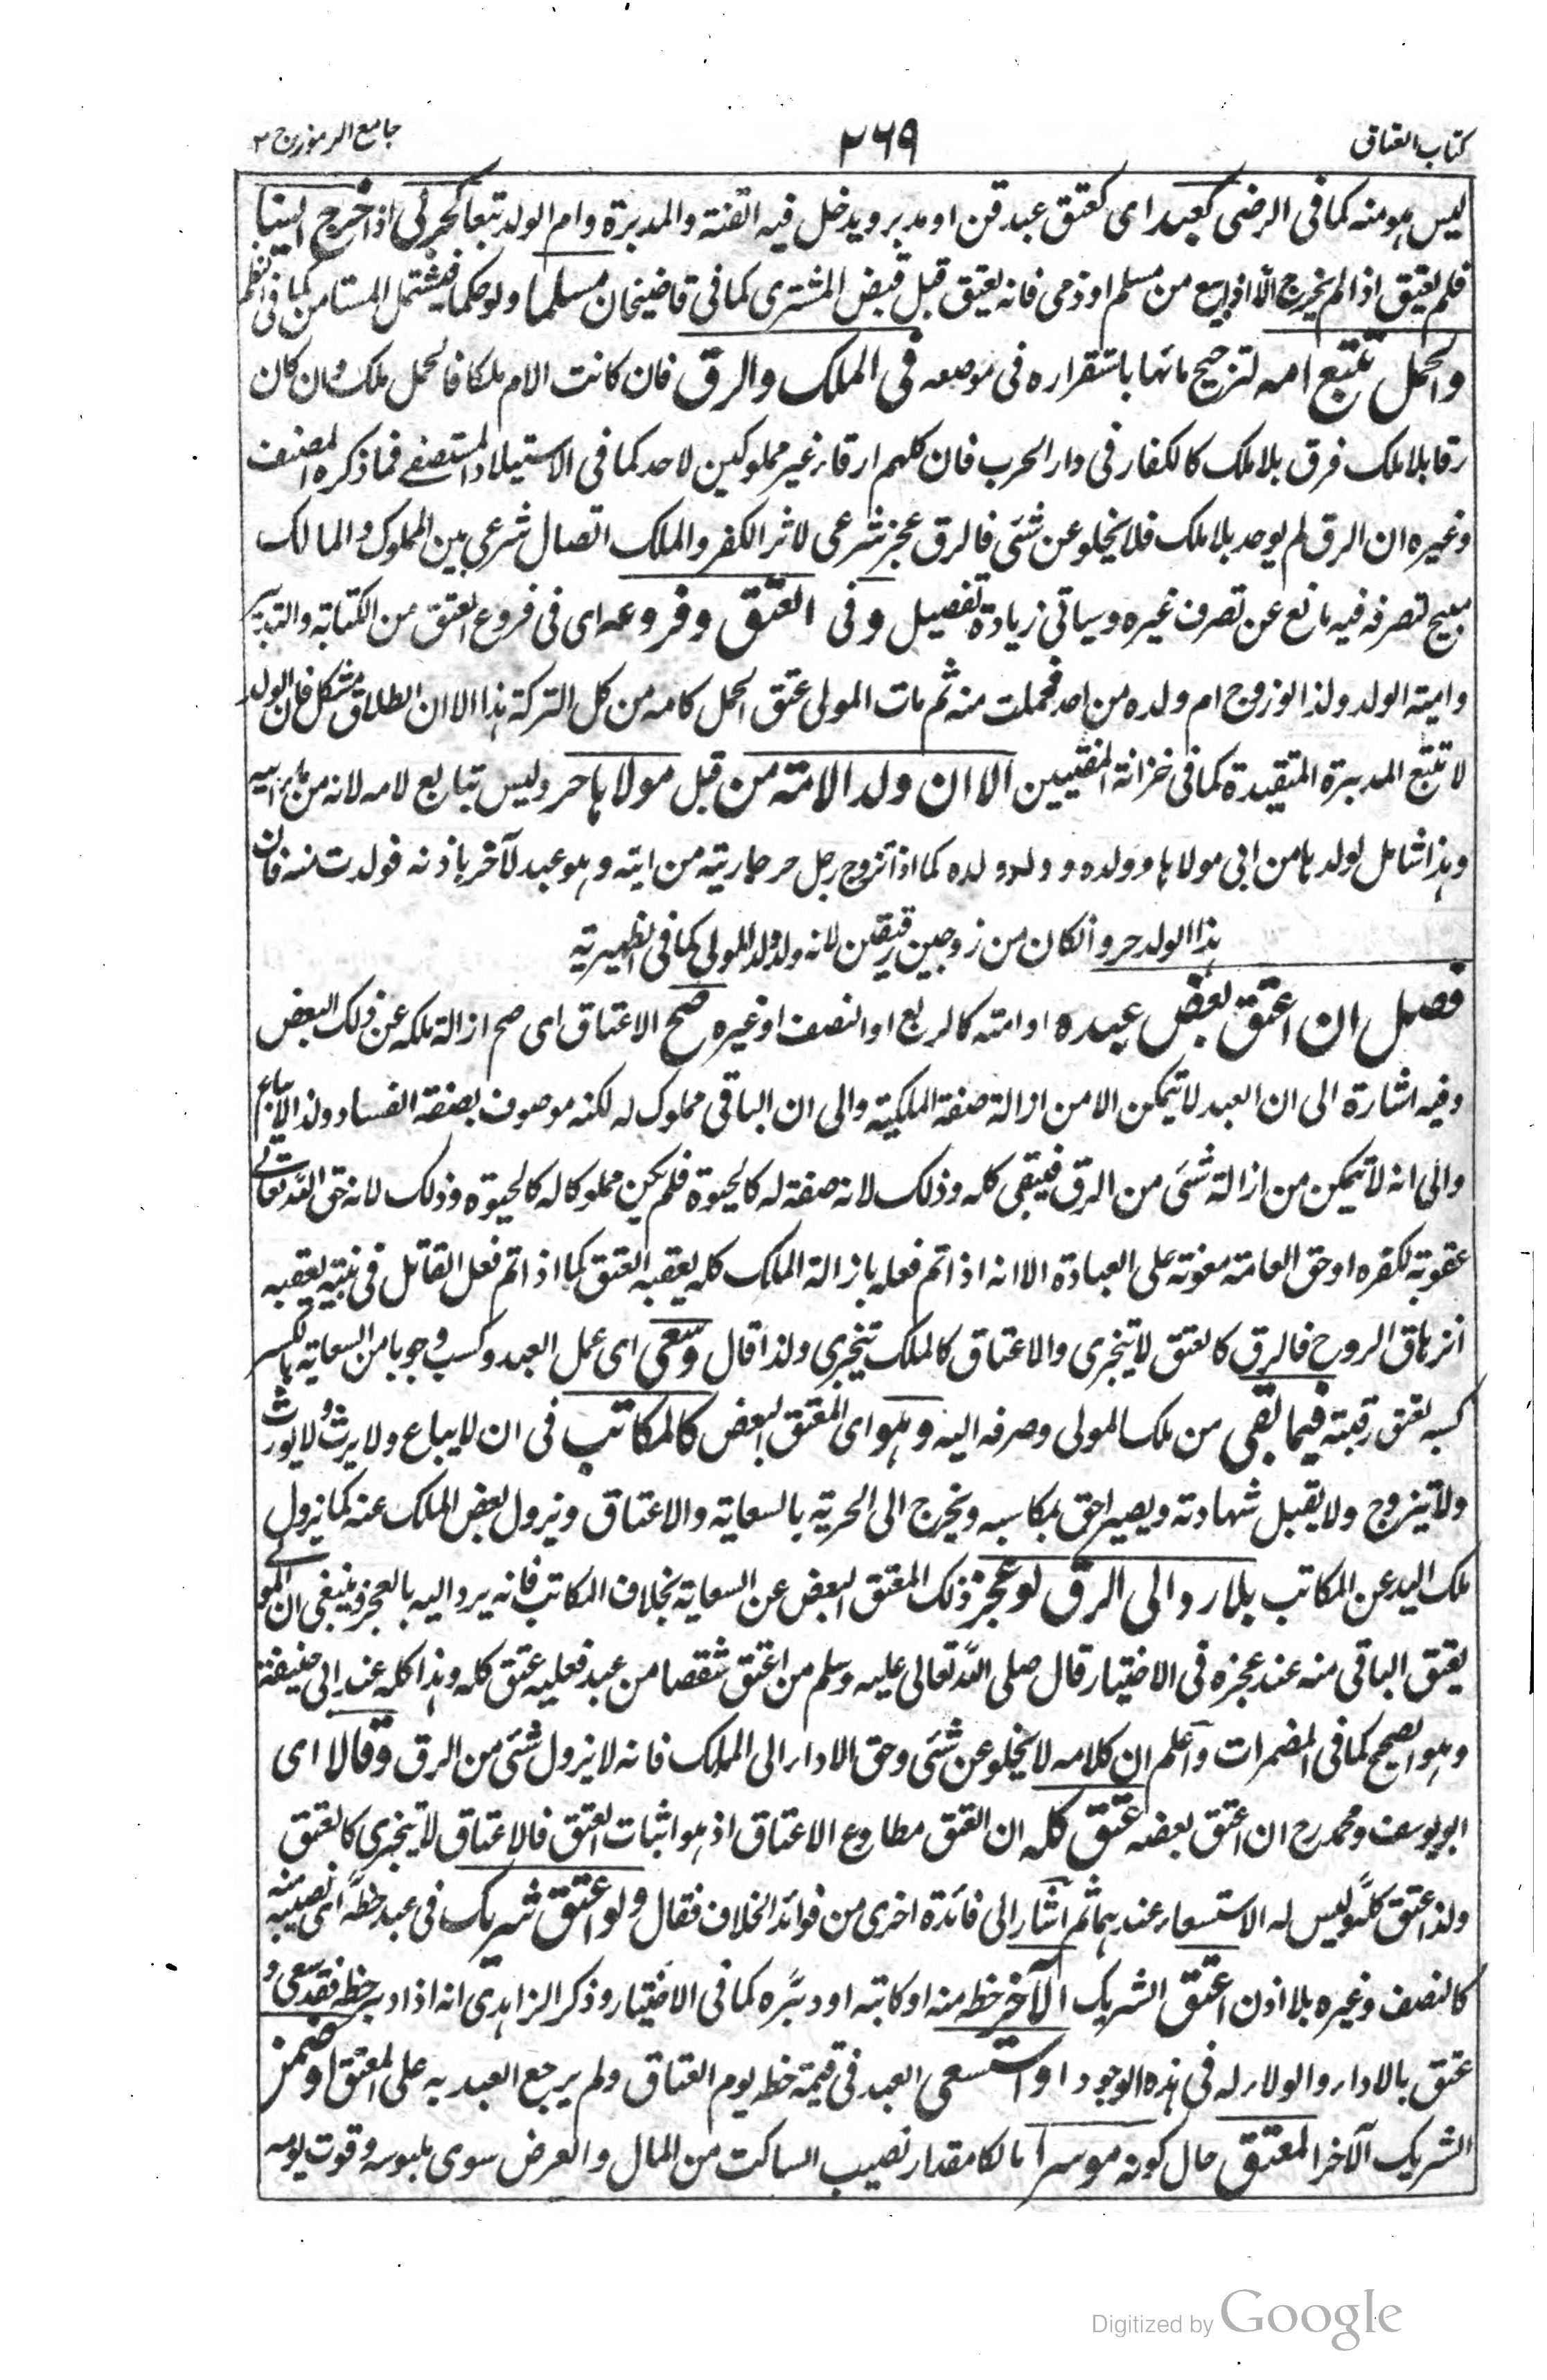 كتاب العتاق
٢٦٩
جامع الرموز ج ٢
ليس هو منه كما فى الرضى كعبد اى كعتق عبد قن او مدبر ويدخل فيه القنة والمدبرة وام الولد تبعا كحربى اذا خرج الينا
فلم يعتق اذا لم يخرج الا اذا بيع من مسلم او ذمى فانه يعتق قبل قبض المشترى كما فى قاضيخان مسلما ولو حكما فيشتمل المستامن كما فى النظم
والحمل تتبع امه لترجيح مائها باستقراره فى موضعه فى الملك والرق فان كانت الام ملكا فالحمل ملك وان كان
رقا بلا ملك فرق بلا ملك كالكفار فى دار الحرب فان كلهم ارقاء غير مملوكين لاحد كما فى الاستيلاد المستصفى فما ذكره المصنف
وغيره ان الرق لم يوجد بلا ملك فلا يخلو عن شئ فالرق عجز شرعى لاثر الكفر والملك اتصال شرعى بين المملوك والمالك
مبيح لتصرفه فيه مانع عن تصرف غيره وسياتى زيادة تفصيل وفى العتق وفروعه اى فى فروع العتق من الكتابة والتدبير
وامية الولد ولذا لو زوج ام ولده من احد فحملت منه ثم مات المولى عتق الحمل كامه من كل التركة هذا الا ان الطلاق مشكل فان الولد
لا تتبع المدبرة المقيدة كما فى خزانة المفتيين الا ان ولد الامة من قبل مولاها حر وليس تبابع لامه لانه من ماء ابيه
وهذا شامل لولدها من ابى مولاها وولده وولد ولده كما اذا تزوج رجل حر جاريته من ابنه وهو عبد لآخر باذنه فولدت منه فان
هذا الولد حر وانكان من زوجين رقيقين لانه ولد ولد المولى كما فى الظهيرية
فصل ان اعتق بعض عبده او امته كالربع او النصف او غيره صح الاعتاق اى صح ازالة ملكه عن ذلك البعض
وفيه اشارة الى ان العبد لا تيمكن الا من ازالة صفة الملكية والى ان الباقى مملوك له لكنه موصوف بصفة الفساد ولذا لا يباع
والى انه لا تيمكن من ازالة شئ من الرق فيبقى كله وذلك لانه صفة له كالحيوة فلم يكن مملوكا له كالحيوة وذلك لانه حق الله تعالى
عقوبة لكفره او حق العامة معونة على العبادة الا انه اذا تم فعله بازالة الملك كله يعقبه العتق كما اذا تم فعل القاتل فى بنيته يعقبه
انزهاق الروح فالرق كالعتق لا يتجزى والاعتاق كالملك تيجزى ولذا قال وسعى اى عمل العبد وكسب وجوبا من السعاية بالكسر
كسبه لعتق رقبته فيما بقى من ملك المولى وصرفه اليه وهو اى المعتق البعض كالمكاتب فى ان لا يباع ولا يرث ولا يورث
ولا تيزوج ولا يقبل شهادته ويصير احق بمكاسبه ويخرج الى الحرية بالسعاية والاعتاق ويزول بعض الملك عنه كما يزول
ملك اليد عن المكاتب بلا رد الى الرق لو عجز ذلك المعتق البعض عن السعاية بخلاف المكاتب فانه يرد اليه بالعجز وينبغى ان المولى
يعتق الباقى منه عند عجزه فى الاختيار قال صلى الله تعالى عليه وسلم من اعتق شقصا من عبد فعليه عتق كله وهذا كله عند ابى حنيفة
وهو الصحيح كما فى المضمرات واعلم ان كلامه لا يخلو عن شئ وحق الاداء الى الملك فانه لا يزول شئ من الرق وقالا اى
ابو يوسف ومحمد رح ان اعتق بعضه عتق كله ان العتق مطاوع الاعتاق اذ هو اثبات العتق فالاعتاق لا تيجزى كالعتق
ولذا عتق كله وليس له الاستسعاء عندهما ثم اشار الى فائدة اخرى من فوائد الخلاف فقال ولو اعتق شريك فى عبد حظه اى نصيبه منه
كالنصف وغيره بلا اذن اعتق الشريك الآخر حظه منه او كاتبه او دبره كما فى الاختيار وذكر الزاهدى انه اذا دبر حظه فقد سعى و
عتق بالاداء والولاء له فى هذه الوجوه او استسعى العبد فى قيمة حظه يوم العتاق ولم يرجع العبد به على المعتق او ضمن
الشريك الآخر المعتق حال كونه موسرا مالكا مقدار نصيب الساكت من المال والعرض سوى ملبوسه وقوت يومه
Digitized by Google